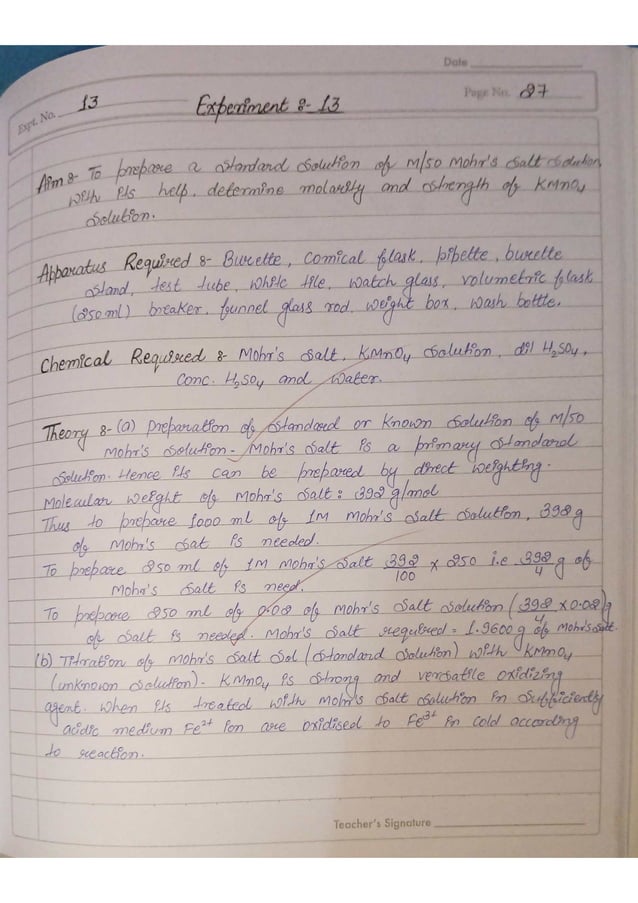 Date
Expt. No. 13 Experiment :- 13 Page No. 27
Aim :- To prepare a standard solution of M/50 Mohr's salt solution
with its help, determine molarity and strength of KMnO4
solution.
Apparatus Required :- Burette, comical flask, pipette, burette
stand, test tube, white tile, watch glass, volumetric flask
(250ml) breaker, funnel glass rod, weight box, wash bottle.
Chemical Required :- Mohr's salt, KMnO4 solution, dil H2SO4,
conc. H2SO4 and water.
Theory :- (a) Preparation of standard or known solution of M/50
Mohr's solution - Mohr's salt is a primary standard
solution. Hence its can be prepared by direct weighting.
Molecular weight of Mohr's salt : 392 g/mol
Thus to prepare 1000 ml of 1M Mohr's salt solution, 392g
of Mohr's sat is needed.
To prepare 250 ml of 1M Mohr's salt 392/100 x 250 i.e 392/4 g of
Mohr's salt is need.
To prepare 250 ml of 0.02 of Mohr's salt solution (392/4 x0.02)g
of salt is needed. Mohr's salt required = 1.9600 g of Mohr's salt.
(b) Titration of Mohr's salt sol (standard solution) with KMnO4
(unknown solution) - KMnO4 is strong and versatile oxidizing
agent. When its treated with mohr's salt solution in sufficiently
acidic medium Fe2+ ion are oxidised to Fe3+ in cold according
to reaction.
Teacher's Signature